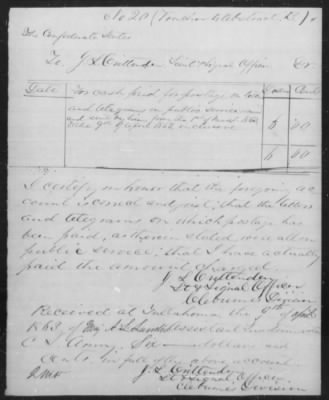 No 20 (Voucher
The Confederate States
To J S Cruttenden Lieut & Signal Officer Dr
Date
For cash paid for postage on letters
and telegrams on public service
and sent by him from the 1st of March 1863
to the 9th of April 1863 inclusive
6 00
6 00
I certify on honor that the foregoing ac
count is correct and just; that the letters
and telegrams on which postage has
been paid, as therein stated were all on
public service; that I have actually
paid the amount charged
J S Cruttenden
Lt & Signal Officer
Cleburnes Division
Received at Tullahoma the 9th of April
1863, of Maj
C S Army, Six — dollars and
cents in full of the above account
J S Cruttenden
Lt & Signal Officer
Cleburnes Division